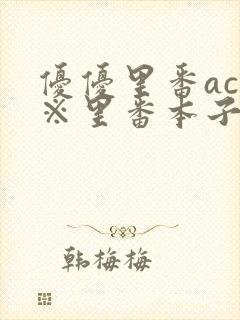 優優里番ac
※里番本子
韩梅梅